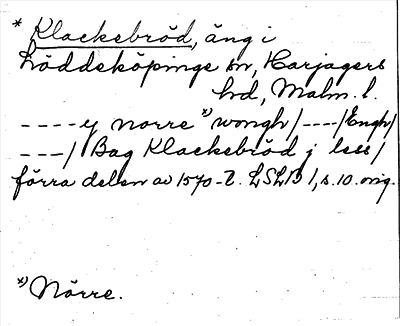 * Klackebröd, äng i
Löddeköpinge sn, Harjagers
hd, Malm. l.
---- y norre *) wongh/---/Engh/
---/ Bag Klackebröd j less/
förra delen av 1570-t. LSLB 1, s. 10. orig.
*) Nörre.